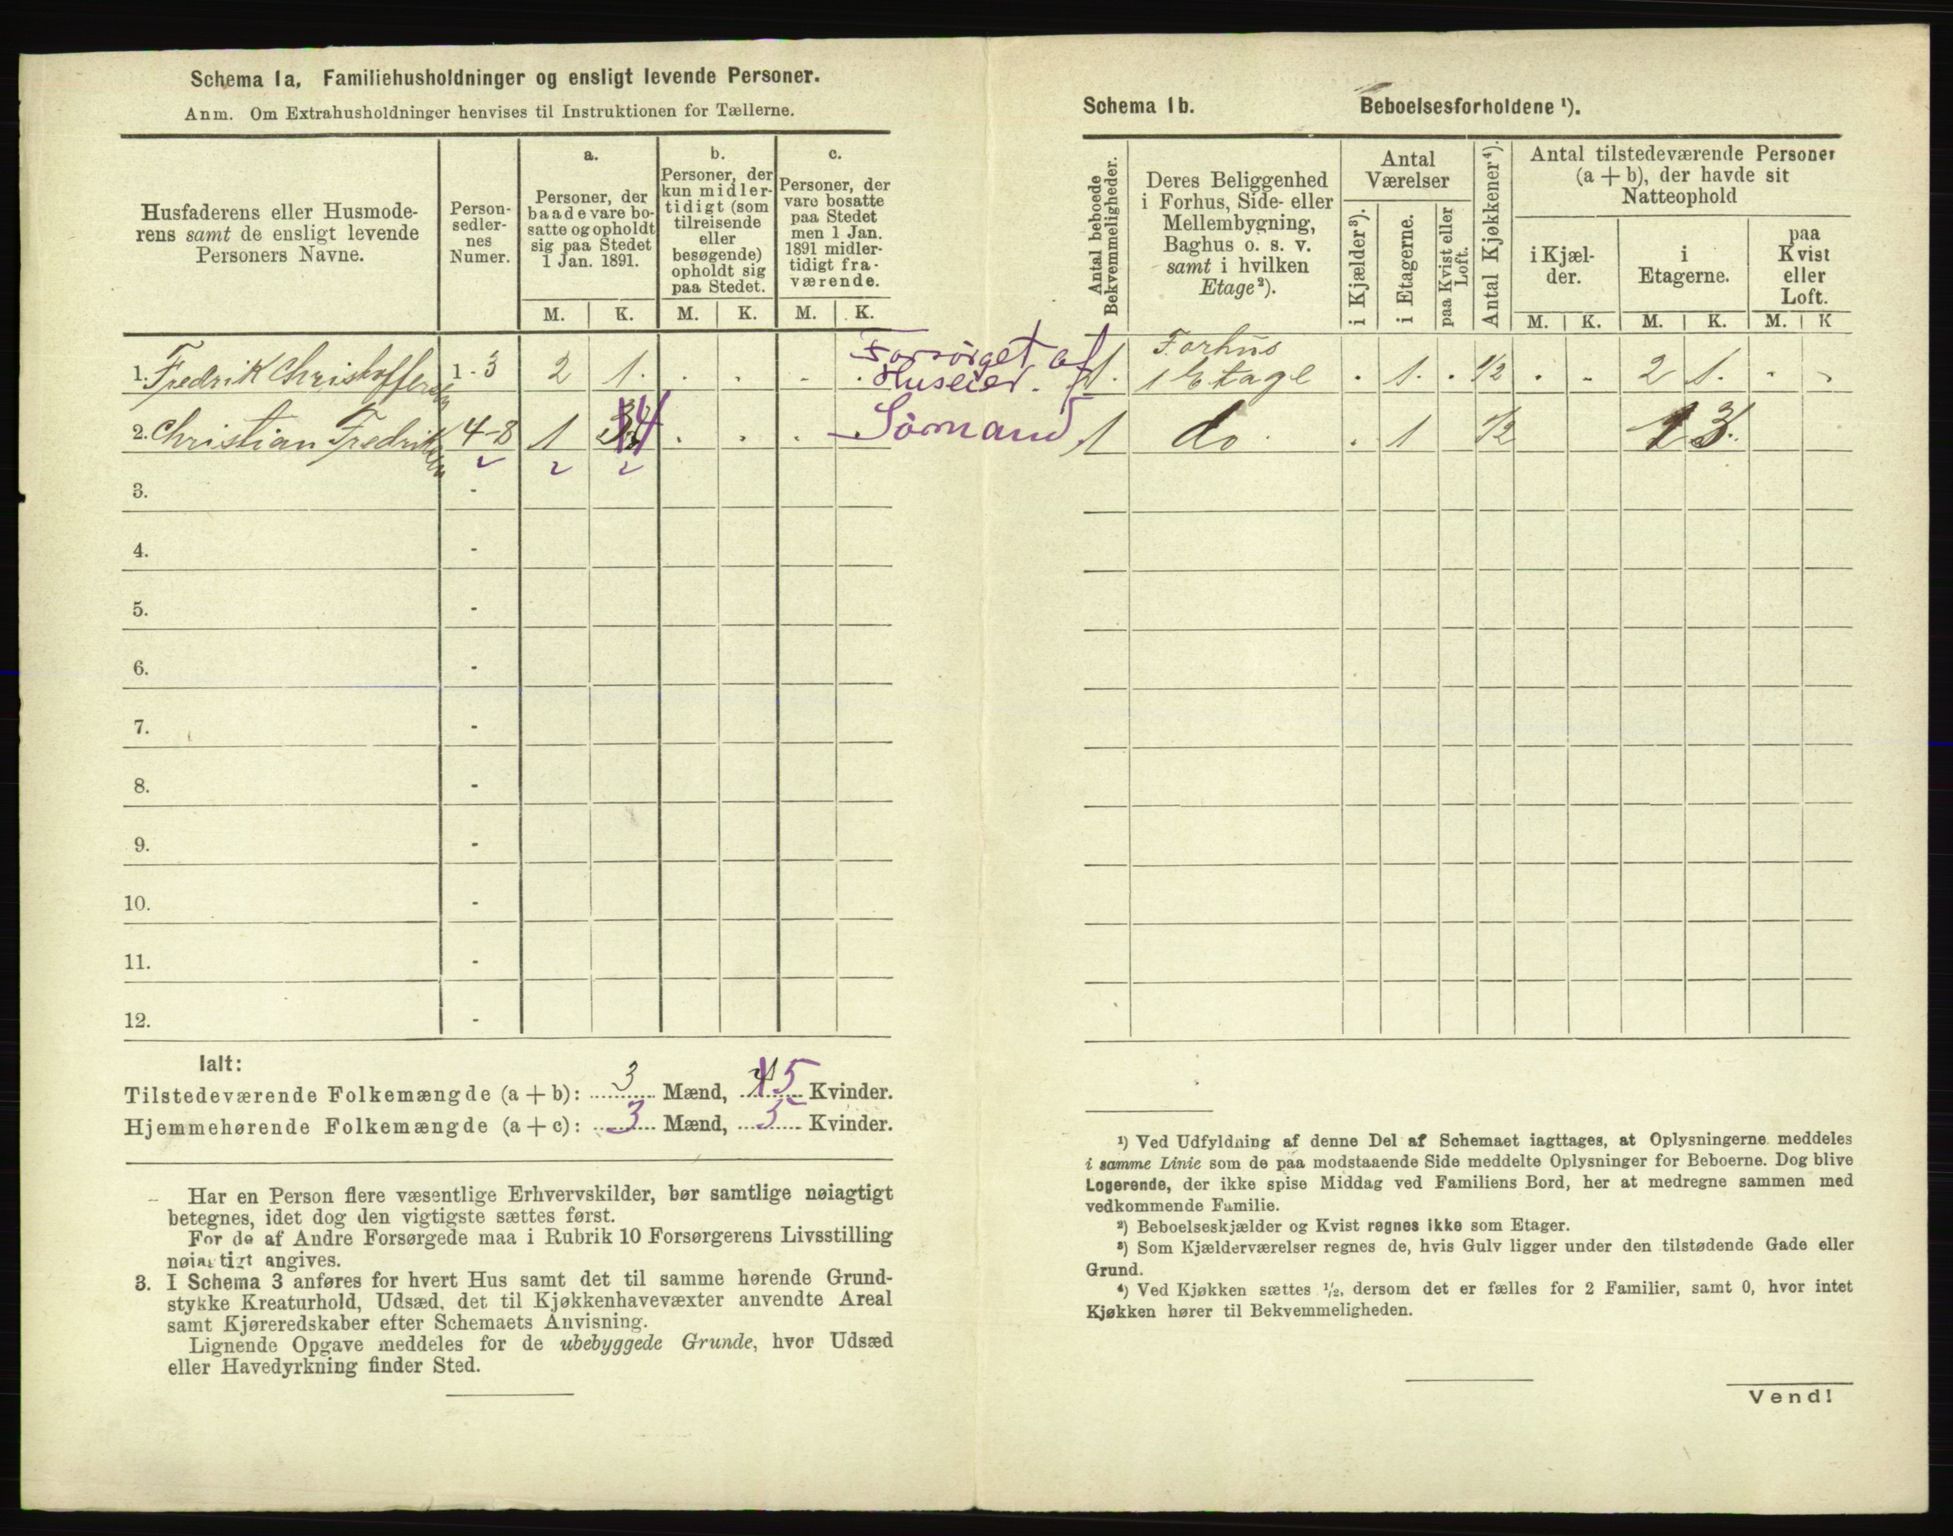 Schema 1a, Familiehusholdninger og ensligt levende Personer.
Anm. Om Extrahusholdninger henvises til Instruktionen for Tællerne.
Husfaderens eller Husmode-
rens samt de ensligt levende
Personers Navne.
Person-
sedler-
nes
Numer.
a.
Personer, der
baade vare bo-
satte og opholdt
sig paa Stedet
1 Jan. 1891.
b.
Personer, der
kun midler-
tidigt (som
tilreisende
eller
besøgende)
opholdt sig
paa Stedet.
c.
Personer, der
vare bosatte
paa Stedet
men 1 Jan.
1891 midler-
tidigt fra-
værende.
M. K. M. K. M. K.
1. Fredrik Christoffersen 1-3 2 1. . . . . Forsørget af
Huseier.
2. Christian Fredriksen 4-8 1 4 . . . Sømand
3. -
4. -
5. -
6. -
7. -
8. -
9. -
10. -
11. -
12. -
Ialt:
Tilstedeværende Folkemængde (a + b): 3 Mænd, 5 Kvinder.
Hjemmehørende Folkemængde (a + c): 3 Mænd, 5 Kvinder.
Har en Person flere væsentlige Erhvervskilder, bør samtlige nøiagtigt
betegnes, idet dog den vigtigste sættes først.
For de af Andre Forsørgede maa i Rubrik 10 Forsørgerens Livsstilling
nøiagtigt angives.
3. I Schema 3 anføres for hvert Hus samt det til samme hørende Grund-
stykke Kreaturhold, Udsæd, det til Kjøkkenhavevæxter anvendte Areal
samt Kjøreredskaber efter Schemaets Anvisning.
Lignende Opgave meddeles for de ubebyggede Grunde, hvor Udsæd
eller Havedyrkning finder Sted.
Schema 1b. Beboelsesforholdene ¹).
Antal beboede
Bekvemmeligheder.
Deres Beliggenhed
i Forhus, Side- eller
Mellembygning,
Baghus o. s. v.
samt i hvilken
Etage²).
Antal
Værelser
i Kjælder³).
i Etagerne.
paa Kvist eller
Loft.
Antal Kjøkkener⁴).
Antal tilstedeværende Personer
(a + b), der havde sit
Natteophold
i Kjæl-
der.
i
Etagerne.
paa
Kvist
eller
Loft.
M. K. M. K. M. K
1. Forhus
1 Etage . 1. . 1/2 . - 2 1. . .
1 do . . 1 1/2 1 3.
¹) Ved Udfyldning af denne Del af Schemaet iagttages, at Oplysningerne meddeles
i samme Linie som de paa modstaaende Side meddelte Oplysninger for Beboerne. Dog blive
Logerende, der ikke spise Middag ved Familiens Bord, her at medregne sammen med
vedkommende Familie.
²) Beboelseskjælder og Kvist regnes ikke som Etager.
³) Som Kjælderværelser regnes de, hvis Gulv ligger under den tilstødende Gade eller
Grund.
⁴) Ved Kjøkken sættes ¹/₂, dersom det er fælles for 2 Familier, samt 0, hvor intet
Kjøkken hører til Bekvemmeligheden.
Vend!